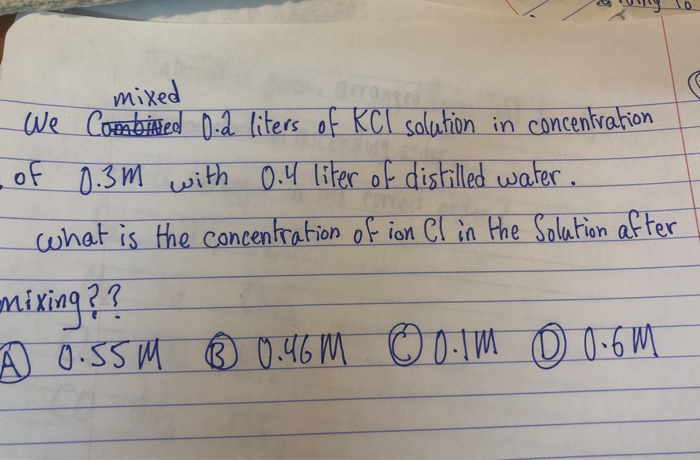 mixed
We Combined 0.2 liters of KCl solution in concentration
of 0.3M with 0.4 liter of distilled water.
what is the concentration of ion Cl in the Solution after
mixing??
A 0.55M B 0.46M C 0.1M D 0.6M